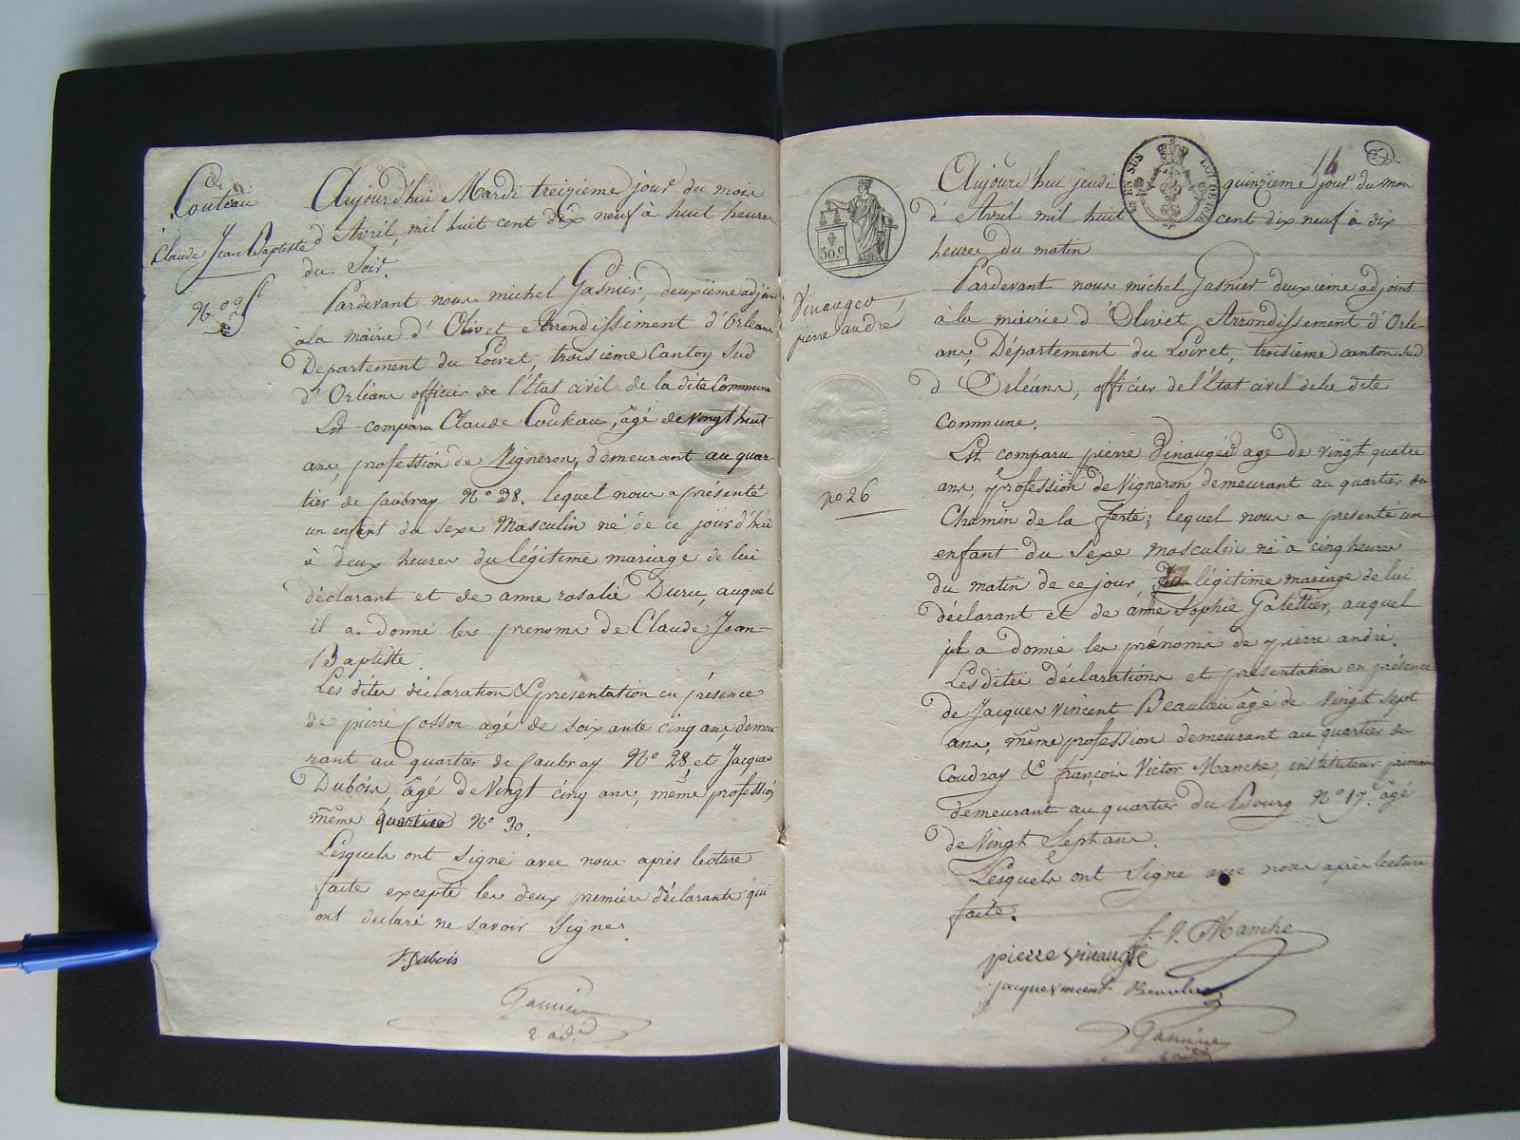 Couteau
Claude Jean Baptiste
N.º 25
Aujourd'hui Mardi treizieme jour du mois
d'Avril, mil huit cent dix neuf à huit heures
du Soir.
Pardevant nous michel Gasnier, deuxieme adjoint
à la mairie d'Olivet Arrondissement d'Orleans
Departement du Loiret, troisieme Canton Sud
d'Orléans officier de l'Etat civil de la dite Commune
Est comparu Claude Couteau, âgé de vingt huit
ans, profession de Vigneron, demeurant au quar-
tier de Caubray N.º 28. lequel nous a présenté
un enfant du Sexe Masculin né de ce jourd'hui
à deux heures du légitime mariage de lui
déclarant et de anne rosalie Duru, auquel
il a donné les prenoms de Claude Jean-
Baptiste.
Les dites déclaration & presentation en présence
de pierre Cosson agé de soixante cinq ans, demeu
rant au quartier de Caubray N.º 28 et Jacques
Dubois, âgé de Vingt cinq ans, même profession
même quartier N.º 30.
Lesquels ont Signé avec nous après lecture
faite excepté les deux premiers déclarants qui
ont declaré ne savoir Signer.
J. Dubois
Gasnier
2 adj.
50 c
Vinauger
pierre andré
nº 26
EN SUS
16
Aujourd'hui jeudi quinzieme jour du mois
d'Avril mil huit cent dix neuf à dix
heures du matin
Pardevant nous michel Gasnier deuxieme adjoint
à la mairie d'Olivet Arrondissement d'Orle-
ans, Département du Loiret, troisieme canton Sud
d'Orléans, officier de l'Etat civil de la dite
Commune.
Est comparu pierre Vinauger agé de vingt quatre
ans, profession de Vigneron demeurant au quartier du
Chemin de la ferté; lequel nous a presenté un
enfant du Sexe masculin né à cinq heures
du matin de ce jour, du légitime mariage de lui
déclarant et de anne Sophie Galettier, auquel
il a donné les prénoms de pierre andré.
Les dites déclarations et présentation en présence
de Jacques Vincent Beaulieu âgé de vingt sept
ans, même profession demeurant au quartier du
Coudray & françois Victor Manche, instituteur primaire
demeurant au quartier du Bourg N.º 17. âgé
de Vingt Sept ans.
Lesquels ont Signé avec nous après lecture
faite.
f. V. Manche
pierre vinauge
jacques vincent Beaulieu
Gasnier
2 adj.